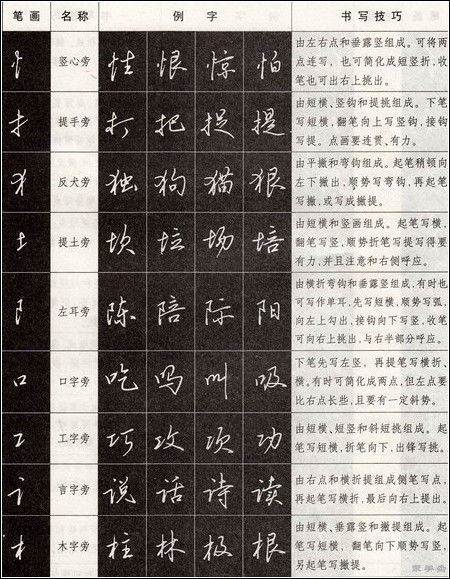 笔画 名称 例字 书写技巧
忄 竖心旁 恨 惊 怕
由左右点和垂露竖组成。可将两
点连写，也可简化成短竖折，收
笔也可出右上挑出。
扌 提手旁 打 把 捉 提
由短横、竖钩和提挑组成。下笔
写短横，翻笔向上写竖钩，接钩
写提。点画要连贯、有力。
犭 反犬旁 独 狗 猫 狠
由平撇和弯钩组成。起笔稍顿向
左下撇出，顺势写弯钩，再起笔
写撇，或写成撇提。
土 提土旁 坎 场 培
由短横和竖画组成。起笔写横，
翻笔写竖，顺势折笔写提写得要
有力，并且注意和右侧呼应。
阝 左耳旁 陈 陪 际 阳
由横折弯钩和垂露竖组成，有时也
可写作单耳，先写短横，顺势写弧，
向左上勾出，接钩向下写竖，收笔
可向右上挑出，与右半部分呼应。
口 口字旁 吃 吗 叫 吸
下笔先写左竖，再提笔写横折、
横。有时可简化成两点，但左点要
比右点长些，且要有一定斜势。
工 工字旁 巧 攻 项 功
由短横、短竖和斜短挑组成。起
笔写短横，折笔向下，出锋写挑。
讠 言字旁 说 话 诗 读
由右点和横折提组成侧笔写点，
再起笔写横折，最后向右上提出。
木 木字旁 柱 林 极 根
由短横、垂露竖和撇提组成。起
笔写短横，翻笔向下顺势写竖，
另起笔写撇提。